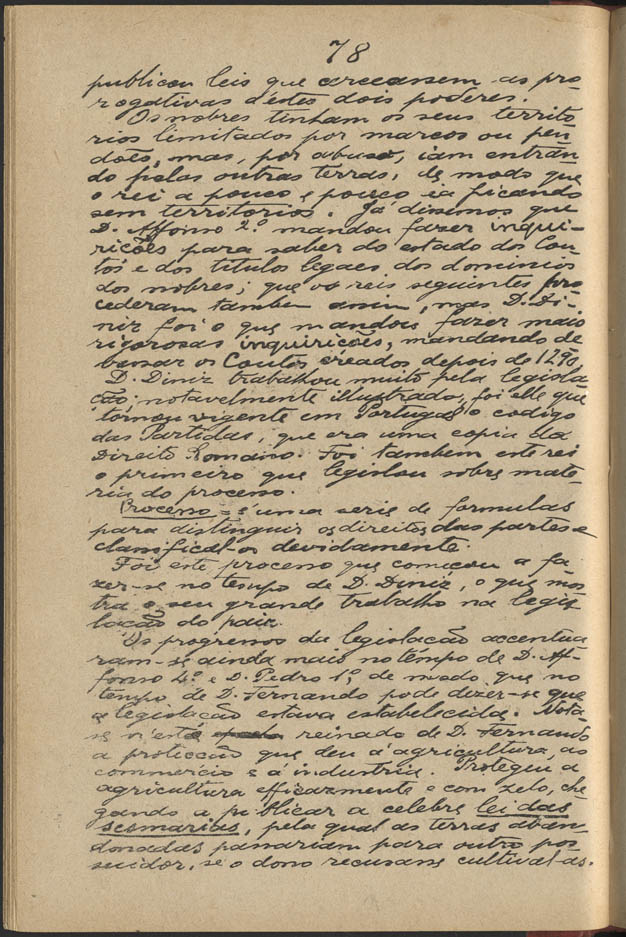 78
publicou leis que cerceassem as pro-
rogativas d'estes dois poderes.
Os nobres tinham os seus territo
rios limitados por marcos ou pen
dões, mas, por abuso, iam entran
do pelas outras terras, de modo que
o rei a pouco e pouco ia ficando
sem territorios. Já dissemos que
D. Affonso 2º mandou fazer inqui-
rições para saber do estado dos Cou-
tos e dos titulos legaes dos dominios
dos nobres; que os reis seguintes pro
cederam tambem assim, mas D. Di-
niz foi o que mandou fazer mais
rigorosas inquirições, mandando de
vassar os Coutos creados depois de 1290
D. Diniz trabalhou muito pela legisla-
ção; notavelmente illustrado, foi elle que
tornou vigente em Portugal o codigo
das Partidas, que era uma copia do
Direito Romano. Foi tambem este rei
o primeiro que legislou sobre mate-
ria do processo.
Processo = é uma serie de formulas
para distinguir os direitos das partes e
classifical-os devidamente.
Foi este processo que começou a fa
zer-se no tempo de D. Diniz, o que mos
tra o seu grande trabalho na legis
lação do paiz.
Os progressos da legislação accentua
ram-se ainda mais no tempo de D. Af-
fonso 4º e D. Pedro 1º, de modo que no
tempo de D. Fernando pode dizer-se que
a legislação estava estabelecida. Nota-
se n'este reinado de D. Fernando
a protecção que deu á agricultura, ao
commercio e á industria. Protegeu a
agricultura efficazmente e com zelo, che
gando a publicar a celebre lei das
sesmarias, pela qual as terras aban-
donadas passariam para outro pos
suidor, se o dono recusasse cultival-as.